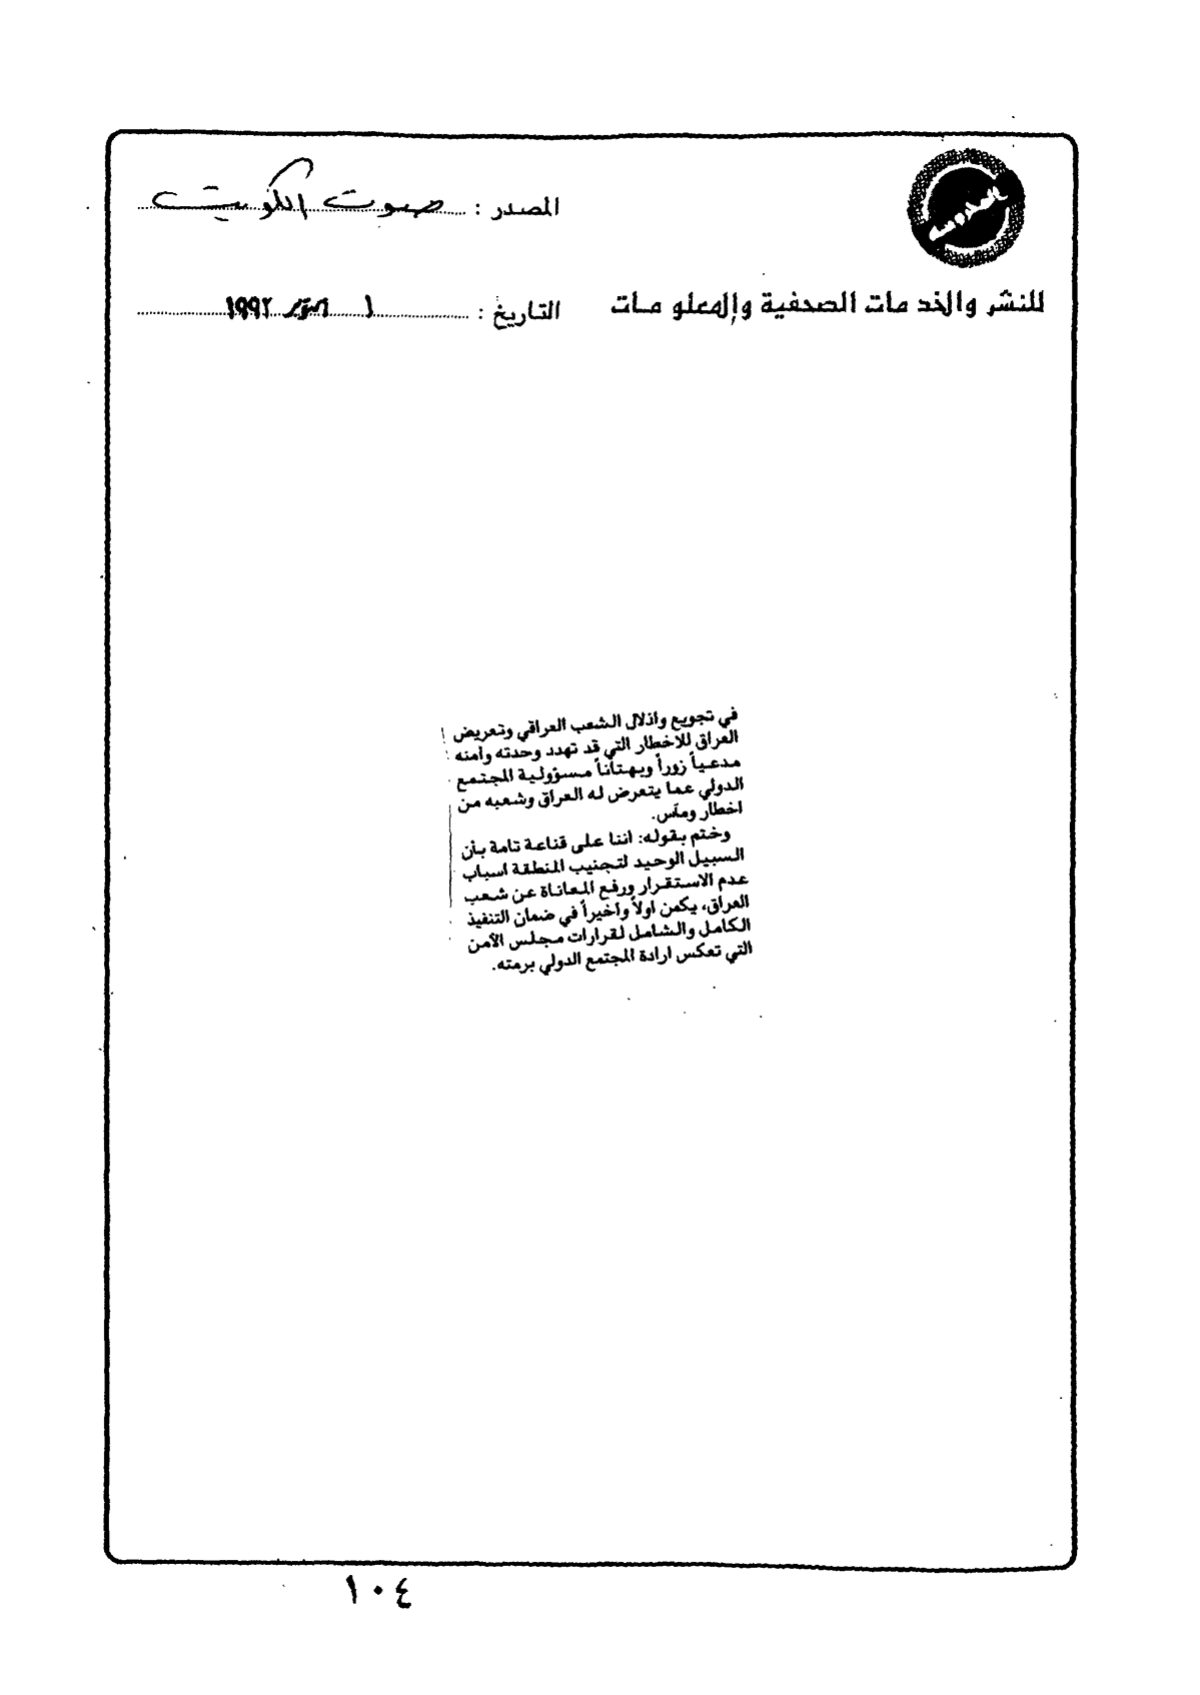 المصدر : صوت الكويت
للنشر والخدمات الصحفية والمعلومات
التاريخ : ١ اكتوبر ١٩٩٢
في تجويع واذلال الشعب العراقي وتعريض
العراق للاخطار التي قد تهدد وحدته وأمنه
مدعياً زوراً وبهتاناً مسؤولية المجتمع
الدولي عما يتعرض له العراق وشعبه من
اخطار ومآس.
وختم بقوله: اننا على قناعة تامة بأن
السبيل الوحيد لتجنيب المنطقة اسباب
عدم الاستقرار ورفع المعاناة عن شعب
العراق، يكمن اولاً وأخيراً في ضمان التنفيذ
الكامل والشامل لقرارات مجلس الأمن
التي تعكس ارادة المجتمع الدولي برمته.
١٠٤